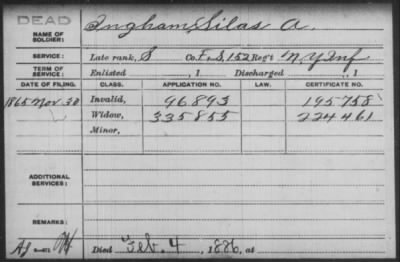 DEAD
NAME OF SOLDIER: Ingham, Silas A
SERVICE: Late rank, S Co. F.&S., 152 Reg't N.Y. Inf
TERM OF SERVICE: Enlisted , 1 Discharged , 1
DATE OF FILING. CLASS. APPLICATION NO. LAW. CERTIFICATE NO.
1865 Nov. 30 Invalid, 96893 195758
Widow, 335855 224461
Minor,
ADDITIONAL SERVICES:
REMARKS:
Died Feb. 4, 1886, at